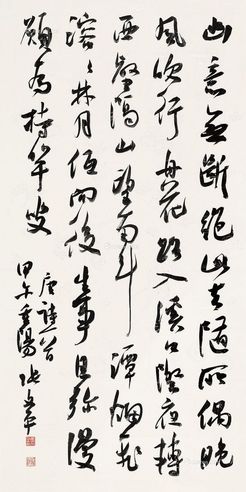 幽意無斷絕此去隨所偶晚
風吹行舟花路入溪口際夜轉
西壑隔山望南斗潭烟飛
溶々林月低向後生事且彌漫
願為持竿叟
唐詩一首
甲午重陽